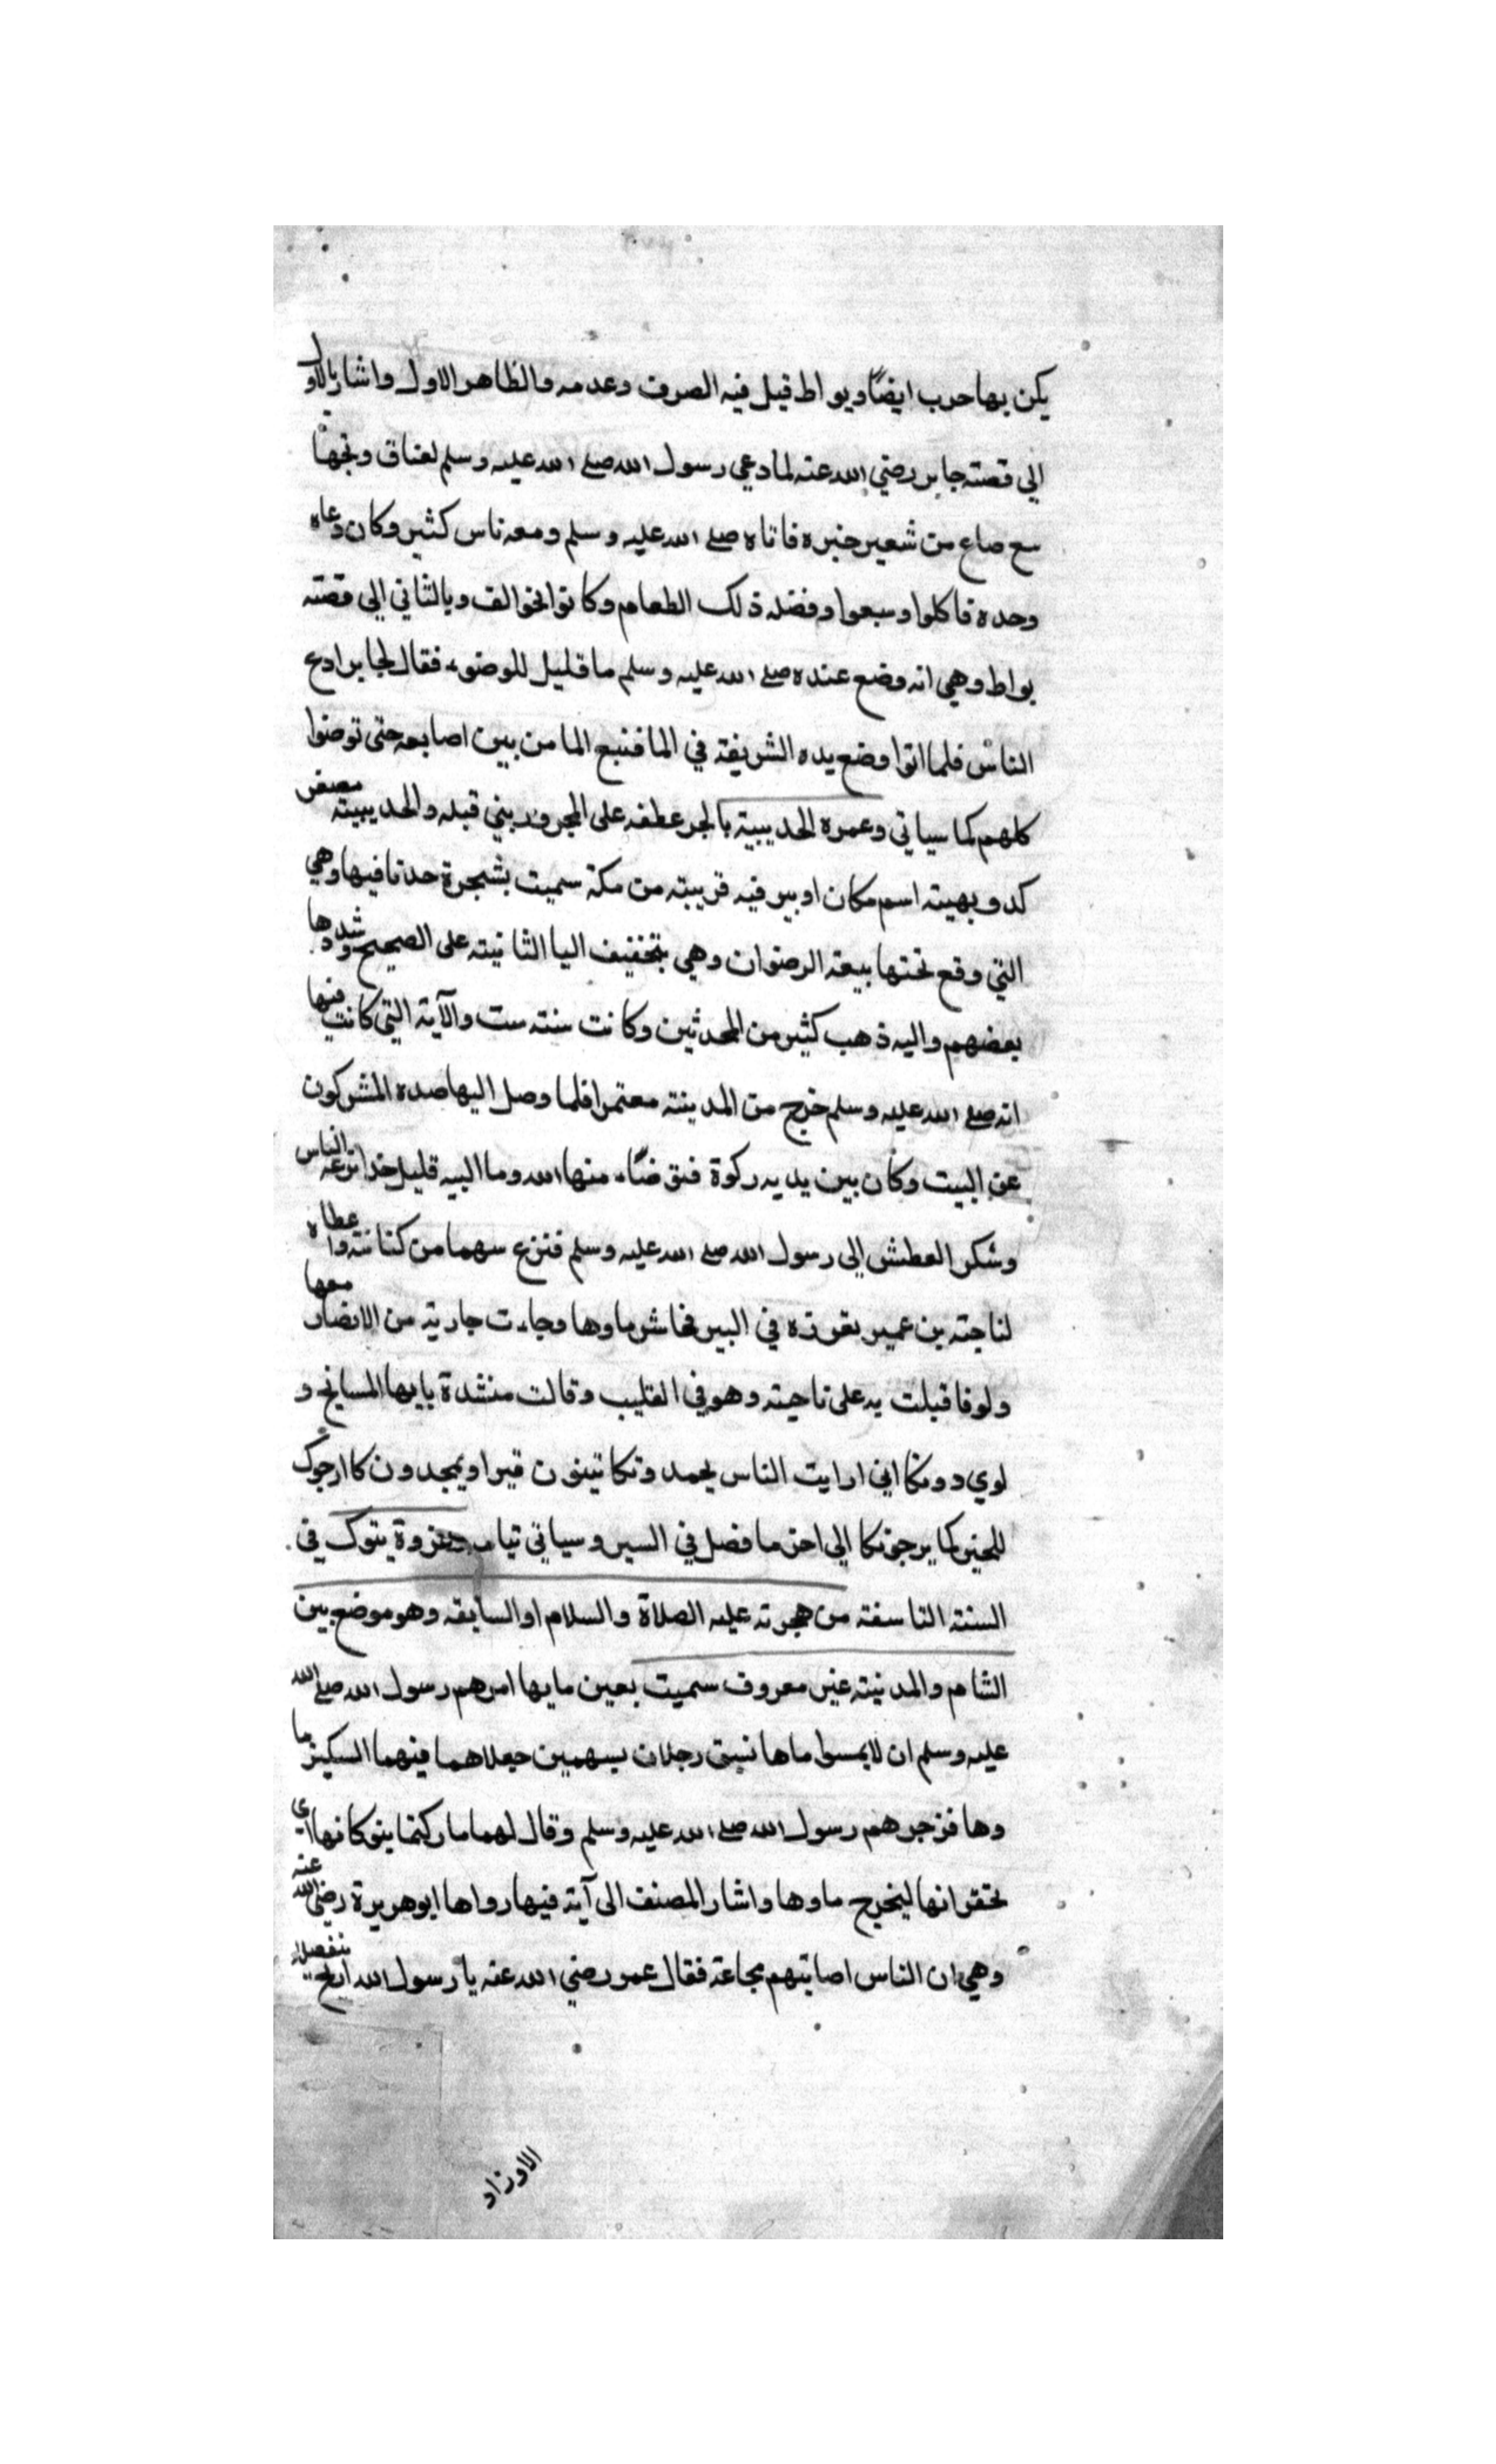 يكن بها حرب ايضًا وبواط قيل فيه الصرف وعدمه والظاهر الاول واشار بالاول
الي قصته جابر رضي الله عنه لما دعي رسول الله صلى الله عليه وسلم لعناق وبجها
مع صاع من شعير خبره فاتاه صلى الله عليه وسلم ومعه ناس كثير وكان دعاه
وحده فاكلوا وسبعوا وفضله ذلك الطعام وكانوا نحو الف وبالثاني الي قصته
بواط وهي انه وضع عنده صلى الله عليه وسلم ما قليل للوضوء فقال لجابر ادع
الناس فلما اتوا وضع يده الشريفة في الما فنبع الما من بين اصابعه حتى توضوا
كلهم كما سياتي وعمره الحديبية بالجر عطفه على المجرور بني قبله والحديبيته مصغر
كدويهيته اسم مكان او بير فيه قريبته من مكة سميت بشجرة حدتا فيها وهي
التي وقع تحتها بيعة الرضوان وهي بتخفيف اليا الثانيته على الصحيح وشددها
بعضهم واليه ذهب كثير من المحدثين وكانت سنته ست والآية التي كانت فيها
انه صلى الله عليه وسلم خرج من المدينته معتمرا فلما وصل اليها صده المشركون
عن البيت وكان بين يديه ركوة فتوضاء منها الله وما البيه قليل الناس
وشكر العطش الى رسول الله صلى الله عليه وسلم فنزع سهما من كنانته واعطاه
لناجته بن عمير بغرزه في البير فجاش ماوها وجاءت جارية من الانصار معها
ولو فاقبلت به على ناحيته وهو في القليب وقالت منشدة يايها المسايح و
لوي دونكا اني ارايت الناس يحمدونكا تينون قيرا ويمجدون كا ارجوك
للخير كما يرجونكا الى اخر ما فصل في السير وسياتي غزوة بتوك في
السنته التاسفته من هجرته عليه الصلاة والسلام او السابقه وهو موضع بين
الشام والمدنيته غير معروف سميت بعين ما بها امرهم رسول الله صلى الله
عليه وسلم ان لا يمسوا ماها نسبق رجلان بسهمين جعلاهما فيهما
وها فزجرهم رسول الله صلى الله عليه وسلم وقال لهما ما ركتما بنوكانها اي
تحقرانها ليخرج ماوها واشار المصنف الى آية فيها رواها ابو هريرة رضي الله عنه
وهي ان الناس اصابتهم مجاعة فقال عمر رضي الله عنه يا رسول الله
الاوزاد